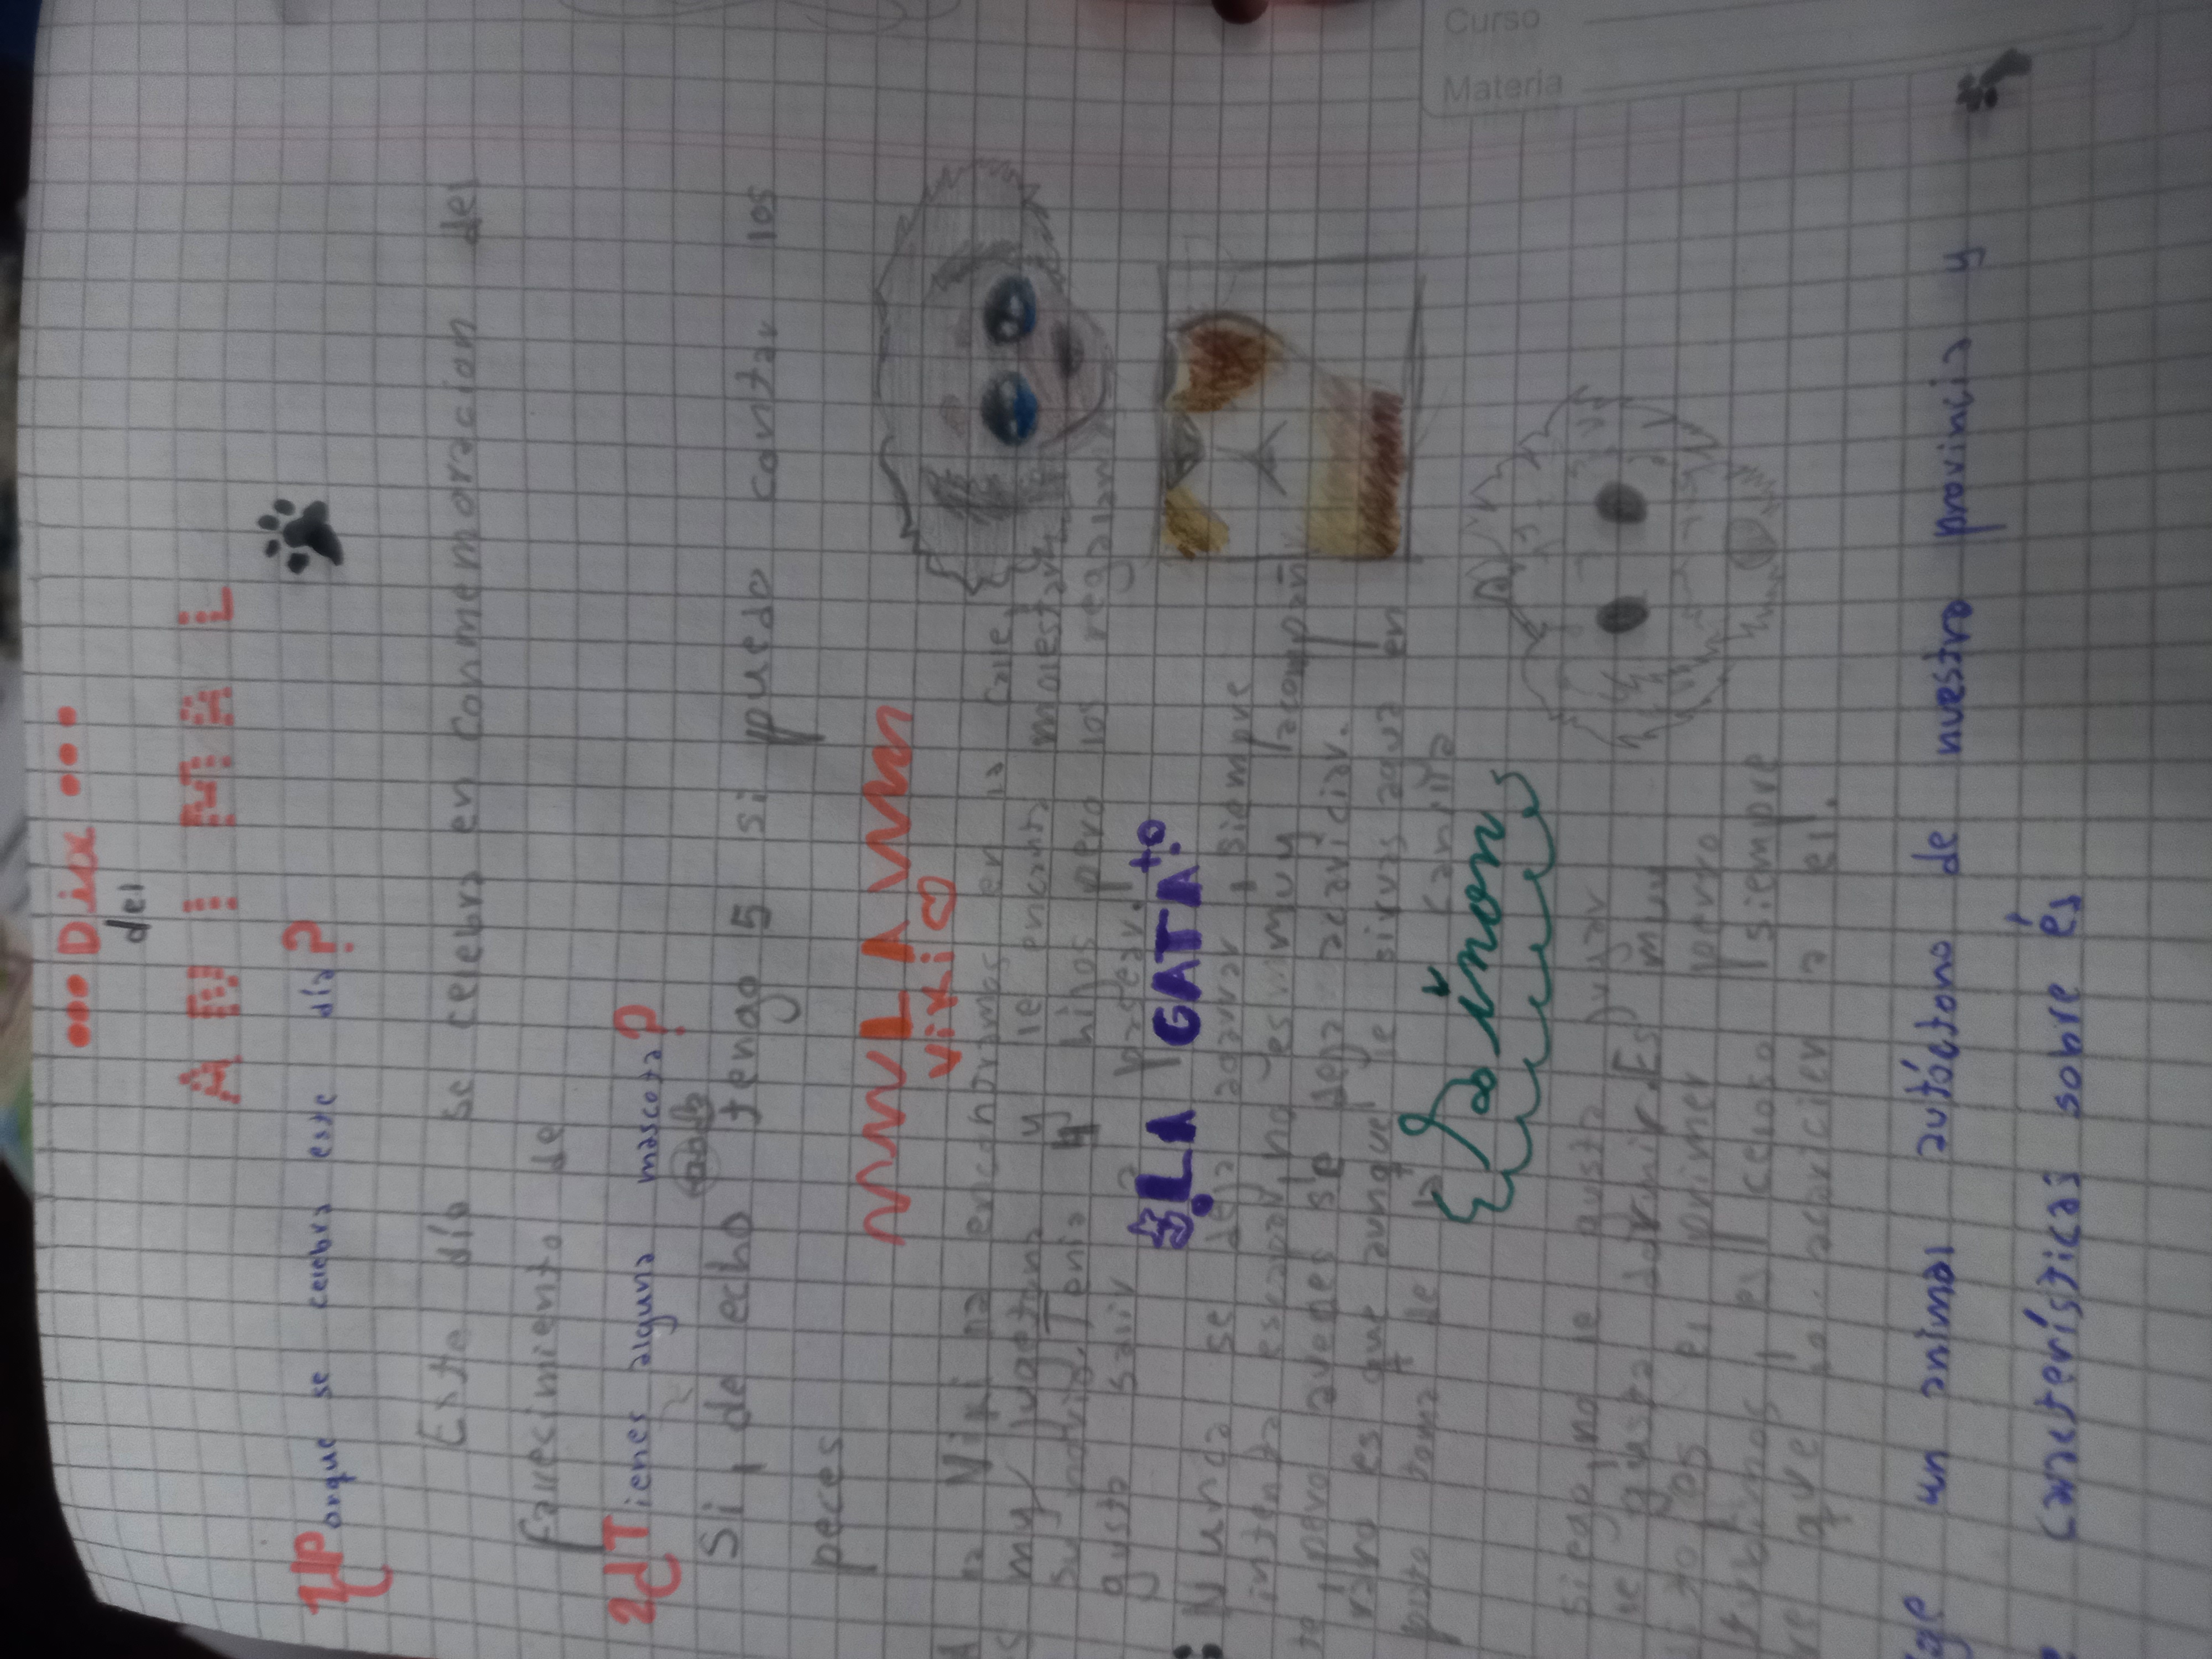 Dia
del
ANIMAL
1¿Porque se celebra este día?
Este día se celebra en conmemoracion del
fallecimiento de
2¿Tienes alguna mascota?
Si, de echo tengo 5 si puedo contar los
peces
LA
viki
A la Viki la encontramos en la calle,
es muy juguetona y le encanta molestar
su novio. Tenia 4 hijos pero los regalam
gusta salir a pasear.
LA GATA
Nunca se deja agarrar, siempre
intenta escapar, no es muy
pero aveces se deja acariciar.
raro es que aunque le sirvas agua en
plato toma de la canilla
Simon
Siego, no le gusta jugar
le gusta dormir. Es muy
el primer perro
tubimos, es celoso, siempre
que lo acaricien a el.
un animal autóctono de nuestra provincia y
características sobre és
Curso
Materia